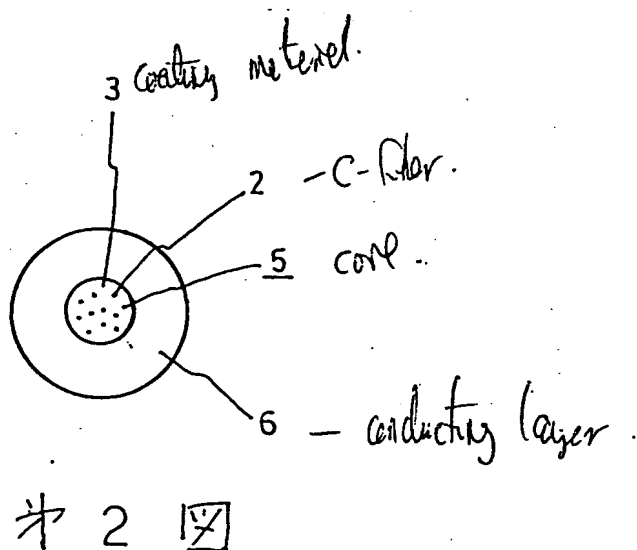 3 coating material.
2 - C-fiber.
5 core.
6 - conducting layer.
第 2 図